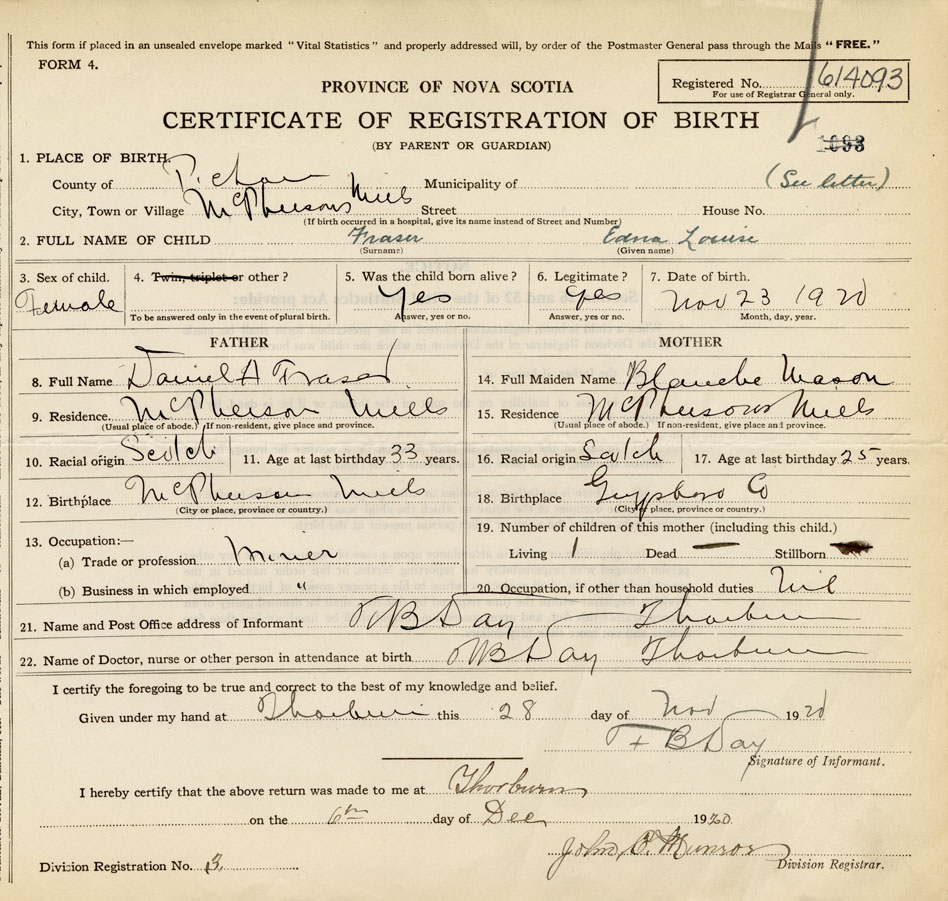 This form if placed in an unsealed envelope marked "Vital Statistics" and properly addressed will, by order of the Postmaster General pass through the Mails "FREE."
FORM 4.
Registered No. 614093
For use of Registrar General only.
PROVINCE OF NOVA SCOTIA
CERTIFICATE OF REGISTRATION OF BIRTH
(BY PARENT OR GUARDIAN)
1093
1. PLACE OF BIRTH.
County of Pictou Municipality of (See letter)
City, Town or Village McPhersons Mills Street House No.
(If birth occurred in a hospital, give its name instead of Street and Number)
2. FULL NAME OF CHILD Fraser Edna Louise
(Surname) (Given name)
3. Sex of child. 4. Twin, triplet or other? 5. Was the child born alive? 6. Legitimate? 7. Date of birth.
Female Yes Yes Nov 23 1920
To be answered only in the event of plural birth. Answer, yes or no. Answer, yes or no. Month, day, year.
FATHER
8. Full Name Daniel A Fraser
9. Residence. McPherson Mills
(Usual place of abode.) If non-resident, give place and province.
10. Racial origin Scotch 11. Age at last birthday 33 years.
12. Birthplace McPherson Mills
(City or place, province or country.)
13. Occupation:—
(a) Trade or profession Miner
(b) Business in which employed "
MOTHER
14. Full Maiden Name Blanche Mason
15. Residence McPhersons Mills
(Usual place of abode.) If non-resident, give place and province.
16. Racial origin Scotch 17. Age at last birthday 25 years.
18. Birthplace Guysboro Co
(City or place, province or country.)
19. Number of children of this mother (including this child.)
Living 1 Dead — Stillborn
20. Occupation, if other than household duties Nil
21. Name and Post Office address of Informant B Day Thorburn
22. Name of Doctor, nurse or other person in attendance at birth B Day Thorburn
I certify the foregoing to be true and correct to the best of my knowledge and belief.
Given under my hand at Thorburn this 28 day of Nov 1920
B Day
Signature of Informant.
I hereby certify that the above return was made to me at Thorburn
on the 6th day of Dec 1920.
John Munro
Division Registration No. 3. Division Registrar.